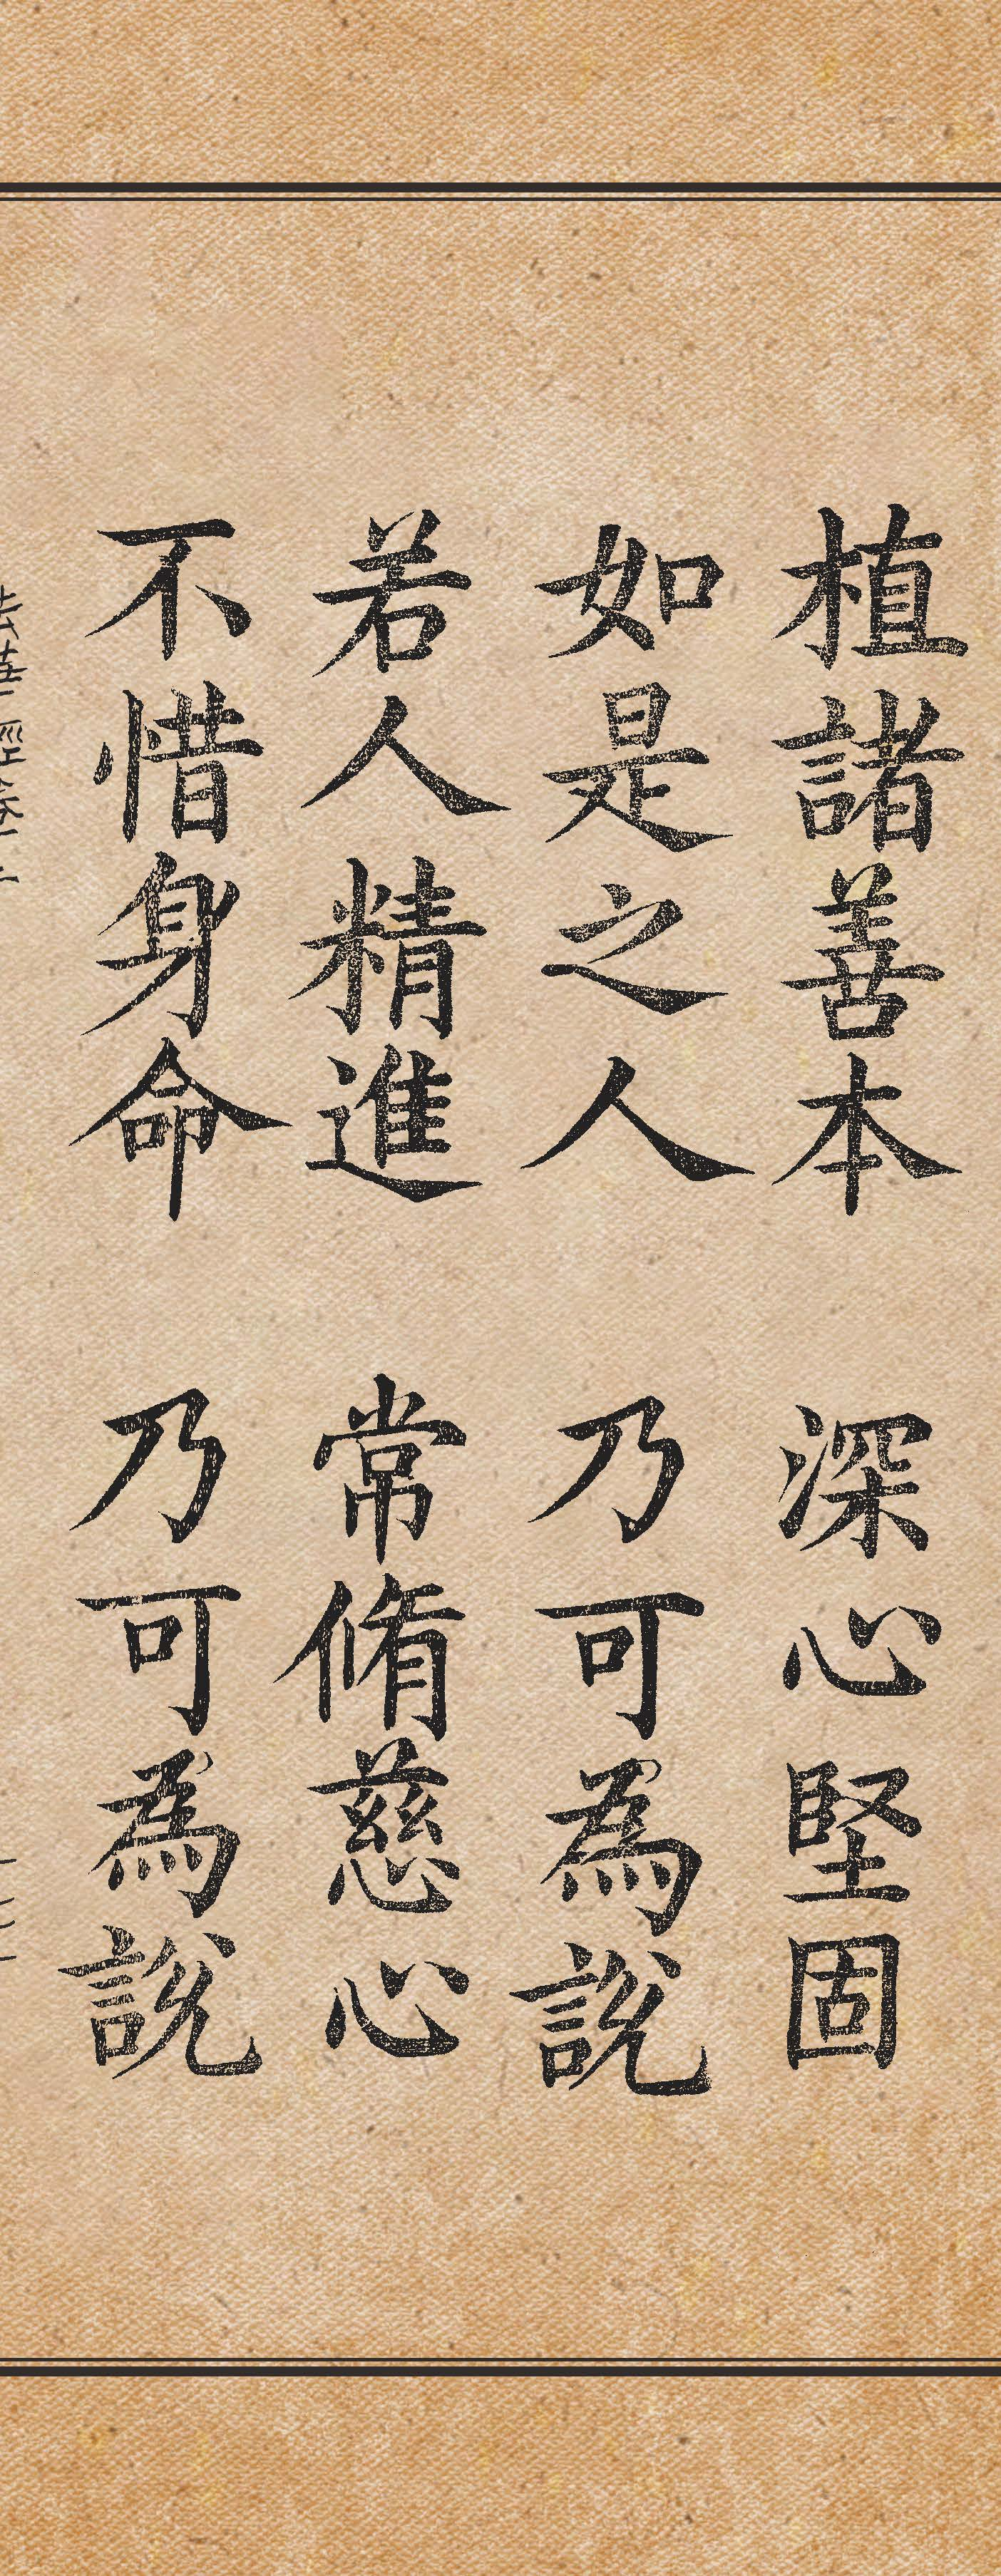 植諸善本　深心堅固
如是之人　乃可為說
若人精進　常脩慈心
不惜身命　乃可為說